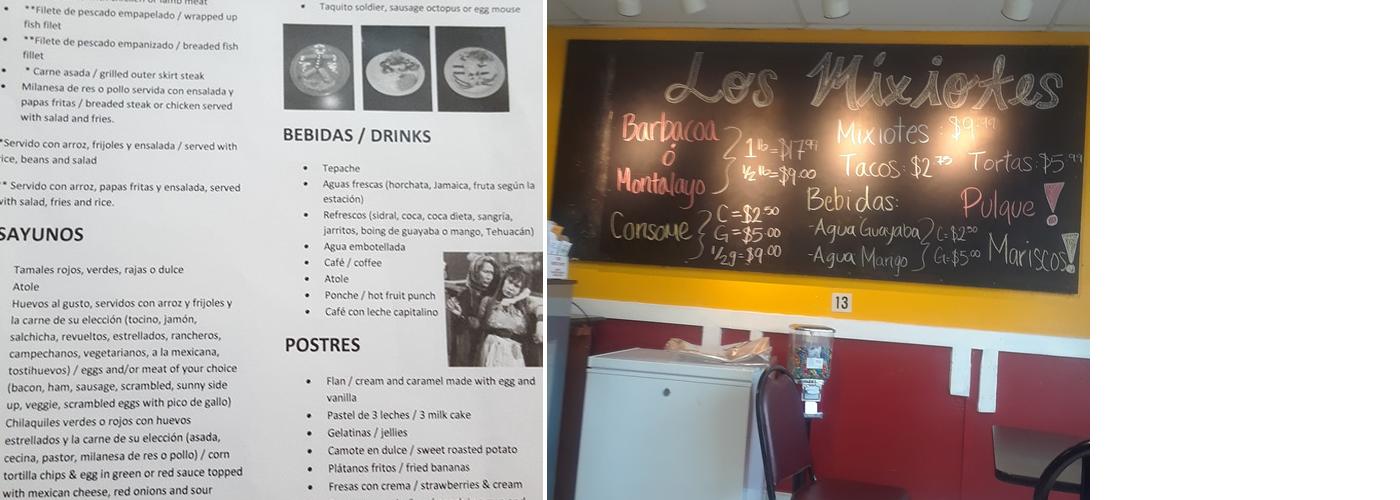 **Filete de pescado empapelado / wrapped up
fish filet
**Filete de pescado empanizado / breaded fish
fillet
* Carne asada / grilled outer skirt steak
Milanesa de res o pollo servida con ensalada y
papas fritas / breaded steak or chicken served
with salad and fries.
*Servido con arroz, frijoles y ensalada / served with
rice, beans and salad
** Servido con arroz, papas fritas y ensalada, served
with salad, fries and rice.
SAYUNOS
Tamales rojos, verdes, rajas o dulce
Atole
Huevos al gusto, servidos con arroz y frijoles y
la carne de su elección (tocino, jamón,
salchicha, revueltos, estrellados, rancheros,
campechanos, vegetarianos, a la mexicana,
tostihuevos) / eggs and/or meat of your choice
(bacon, ham, sausage, scrambled, sunny side
up, veggie, scrambled eggs with pico de gallo)
Chilaquiles verdes o rojos con huevos
estrellados y la carne de su elección (asada,
cecina, pastor, milanesa de res o pollo) / corn
tortilla chips & egg in green or red sauce topped
with mexican cheese, red onions and sour
Taquito soldier, sausage octopus or egg mouse
BEBIDAS / DRINKS
Tepache
Aguas frescas (horchata, Jamaica, fruta según la
estación)
Refrescos (sidral, coca, coca dieta, sangría,
jarritos, boing de guayaba o mango, Tehuacán)
Agua embotellada
Café / coffee
Atole
Ponche / hot fruit punch
Café con leche capitalino
POSTRES
Flan / cream and caramel made with egg and
vanilla
Pastel de 3 leches / 3 milk cake
Gelatinas / jellies
Camote en dulce / sweet roasted potato
Plátanos fritos / fried bananas
Fresas con crema / strawberries & cream
Los Mixiotes
Barbacoa
ó
Montalayo
1 lb = $17.99
1/2 lb = $9.00
Consome
C = $2.50
G = $5.00
1/2g = $9.00
Mixiotes: $9.99
Tacos: $2.75 Tortas: $5.99
Bebidas:
-Agua Guayaba
-Agua Mango
C = $2.50
G = $5.00
Pulque!
Mariscos!
13